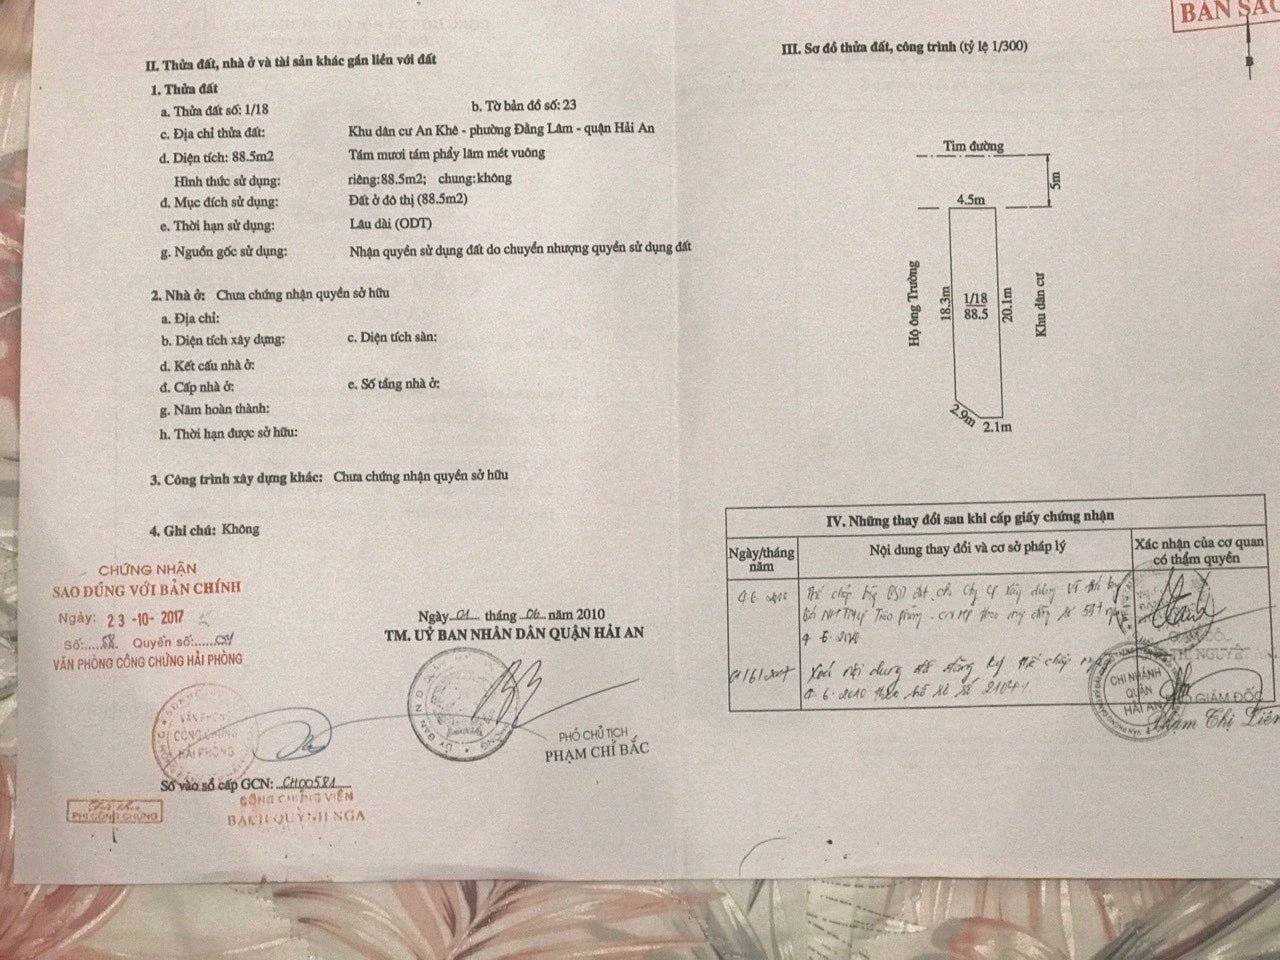 II. Thửa đất, nhà ở và tài sản khác gắn liền với đất
1. Thửa đất
a. Thửa đất số: 1/18
b. Tờ bản đồ số: 23
c. Địa chỉ thửa đất: Khu dân cư An Khê - phường Đằng Lâm - quận Hải An
d. Diện tích: 88.5m2 Tám mươi tám phẩy lăm mét vuông
Hình thức sử dụng: riêng:88.5m2; chung:không
đ. Mục đích sử dụng: Đất ở đô thị (88.5m2)
e. Thời hạn sử dụng: Lâu dài (ODT)
g. Nguồn gốc sử dụng: Nhận quyền sử dụng đất do chuyển nhượng quyền sử dụng đất
2. Nhà ở: Chưa chứng nhận quyền sở hữu
a. Địa chỉ:
b. Diện tích xây dựng: c. Diện tích sàn:
d. Kết cấu nhà ở:
đ. Cấp nhà ở: e. Số tầng nhà ở:
g. Năm hoàn thành:
h. Thời hạn được sở hữu:
3. Công trình xây dựng khác: Chưa chứng nhận quyền sở hữu
4. Ghi chú: Không
CHỨNG NHẬN
SAO ĐÚNG VỚI BẢN CHÍNH
Ngày: 23-10-2017
Số: Quyển số:
VĂN PHÒNG CÔNG CHỨNG HẢI PHÒNG
VĂN PHÒNG
CÔNG CHỨNG
HẢI PHÒNG
Ngày 01 tháng 06 năm 2010
TM. UỶ BAN NHÂN DÂN QUẬN HẢI AN
PHÓ CHỦ TỊCH
PHẠM CHÍ BẮC
Số vào sổ cấp GCN: CH00581
CÔNG CHỨNG VIÊN
BẠCH QUỲNH NGA
PHÍ CÔNG CHỨNG
BẢN SAO
III. Sơ đồ thửa đất, công trình (tỷ lệ 1/300)
B
Tim đường
5m
4.5m
Hộ ông Trường
18.3m
1/18
88.5
20.1m
Khu dân cư
2.9m
2.1m
IV. Những thay đổi sau khi cấp giấy chứng nhận
Ngày/tháng năm
Nội dung thay đổi và cơ sở pháp lý
Xác nhận của cơ quan có thẩm quyền
Thế chấp
Xoá nội dung đã đăng ký thế chấp ngày
CHI NHÁNH
QUẬN
HẢI AN
GIÁM ĐỐC
Phạm Thị Liên